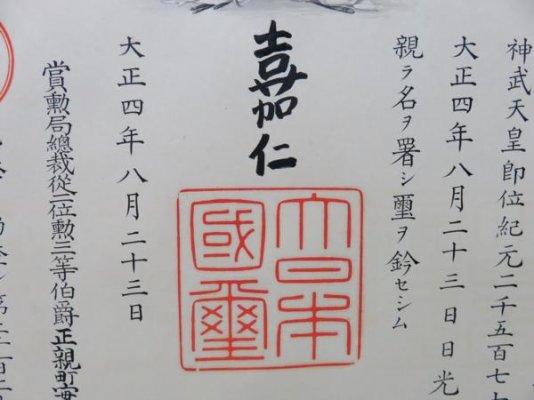 神武天皇即位紀元二千五百七
大正四年八月二十三日日光
親ラ名ヲ署シ璽ヲ鈐セシム
嘉仁
大日本
國璽
大正四年八月二十三日
賞勳局總裁從二位勳三等伯爵正親町實